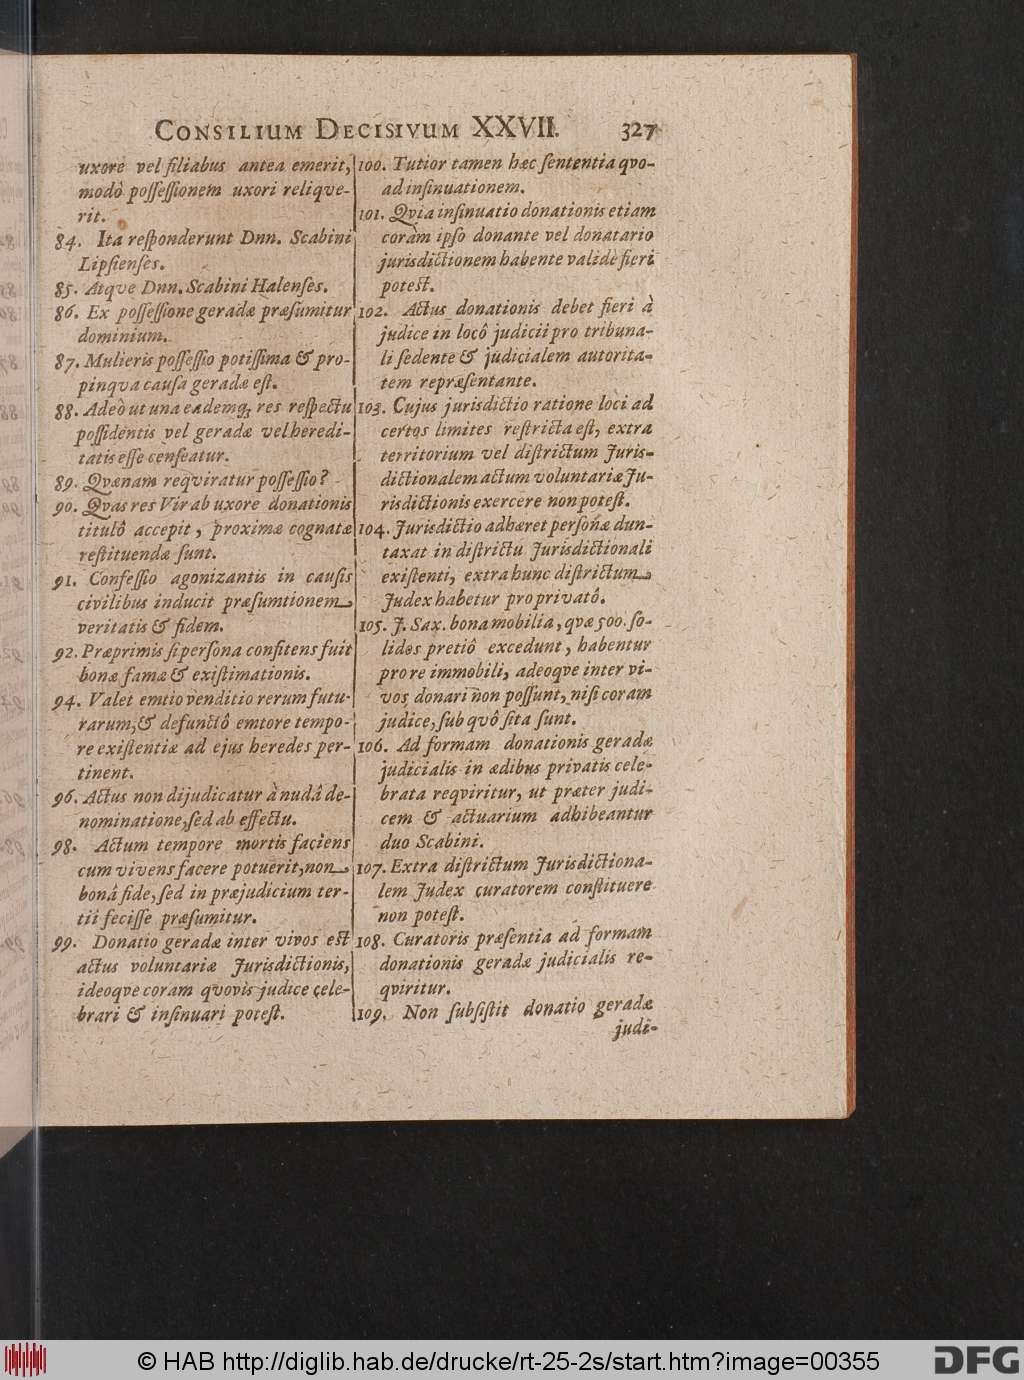 CONSILIUM DECISIVUM XXVII. 327
uxore vel filiabus antea emerit,
modò possessionem uxori relique-
rit.
84. Ita responderunt Dnn. Scabini
Lipsienses.
85. Atque Dnn. Scabini Halenses.
86. Ex possessione geradæ præsumitur
dominium.
87. Mulieris possessio potissima & pro-
pinqva causa geradæ est.
88. Adeò ut una eademq; res respectu
possidentis vel geradæ vel heredi-
tatis esse censeatur.
89. Qvænam reqviratur possessio?
90. Qvas res Vir ab uxore donationis
titulô accepit, proximæ cognatæ
restituendæ sunt.
91. Confessio agonizantis in causis
civilibus inducit præsumtionem
veritatis & fidem.
92. Præprimis si persona confitens fuit
bonæ famæ & existimationis.
94. Valet emtio venditio rerum futu-
rarum, & defunctô emtore tempo-
re existentiæ ad ejus heredes per-
tinent.
96. Actus non dijudicatur à nudâ de-
nominatione, sed ab effectu.
98. Actum tempore mortis faciens
cum vivens facere potuerit, non
bonâ fide, sed in præjudicium ter-
tii fecisse præsumitur.
99. Donatio geradæ inter vivos est
actus voluntariæ Jurisdictionis,
ideoqve coram qvovis judice cele-
brari & insinuari potest.
100. Tutior tamen hæc sententia qvo-
ad insinuationem.
101. Qvia insinuatio donationis etiam
coràm ipso donante vel donatario
jurisdictionem habente validè fieri
potest.
102. Actus donationis debet fieri à
judice in locô judicii pro tribuna-
li sedente & judicialem autorita-
tem repræsentante.
103. Cujus jurisdictio ratione loci ad
certos limites restricta est, extra
territorium vel districtum Juris-
dictionalem actum voluntariæ Ju-
risdictionis exercere non potest.
104. Jurisdictio adhæret personæ dun-
taxat in districtu Jurisdictionali
existenti, extra hunc districtum
Judex habetur pro privatô.
105. J. Sax. bona mobilia, qvæ 500. so-
lidos pretiô excedunt, habentur
pro re immobili, adeoqve inter vi-
vos donari non possunt, nisi coram
judice, sub qvô sita sunt.
106. Ad formam donationis geradæ
judicialis in ædibus privatis cele-
brata reqviritur, ut præter judi-
cem & actuarium adhibeantur
duo Scabini.
107. Extra districtum Jurisdictiona-
lem Judex curatorem constituere
non potest.
108. Curatoris præsentia ad formam
donationis geradæ judicialis re-
qviritur.
109. Non subsistit donatio geradæ
judi-
© HAB http://diglib.hab.de/drucke/rt-25-2s/start.htm?image=00355
DFG